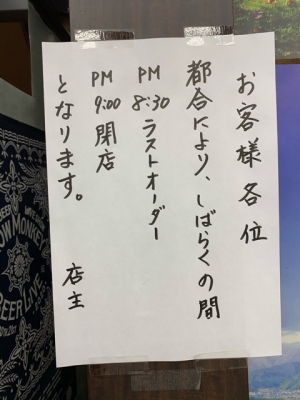 お客様各位
都合により、しばらくの間
PM 8:30 ラストオーダー
PM 9:00 閉店
となります。
店主
BEER
MONKEY
BEER LIVE